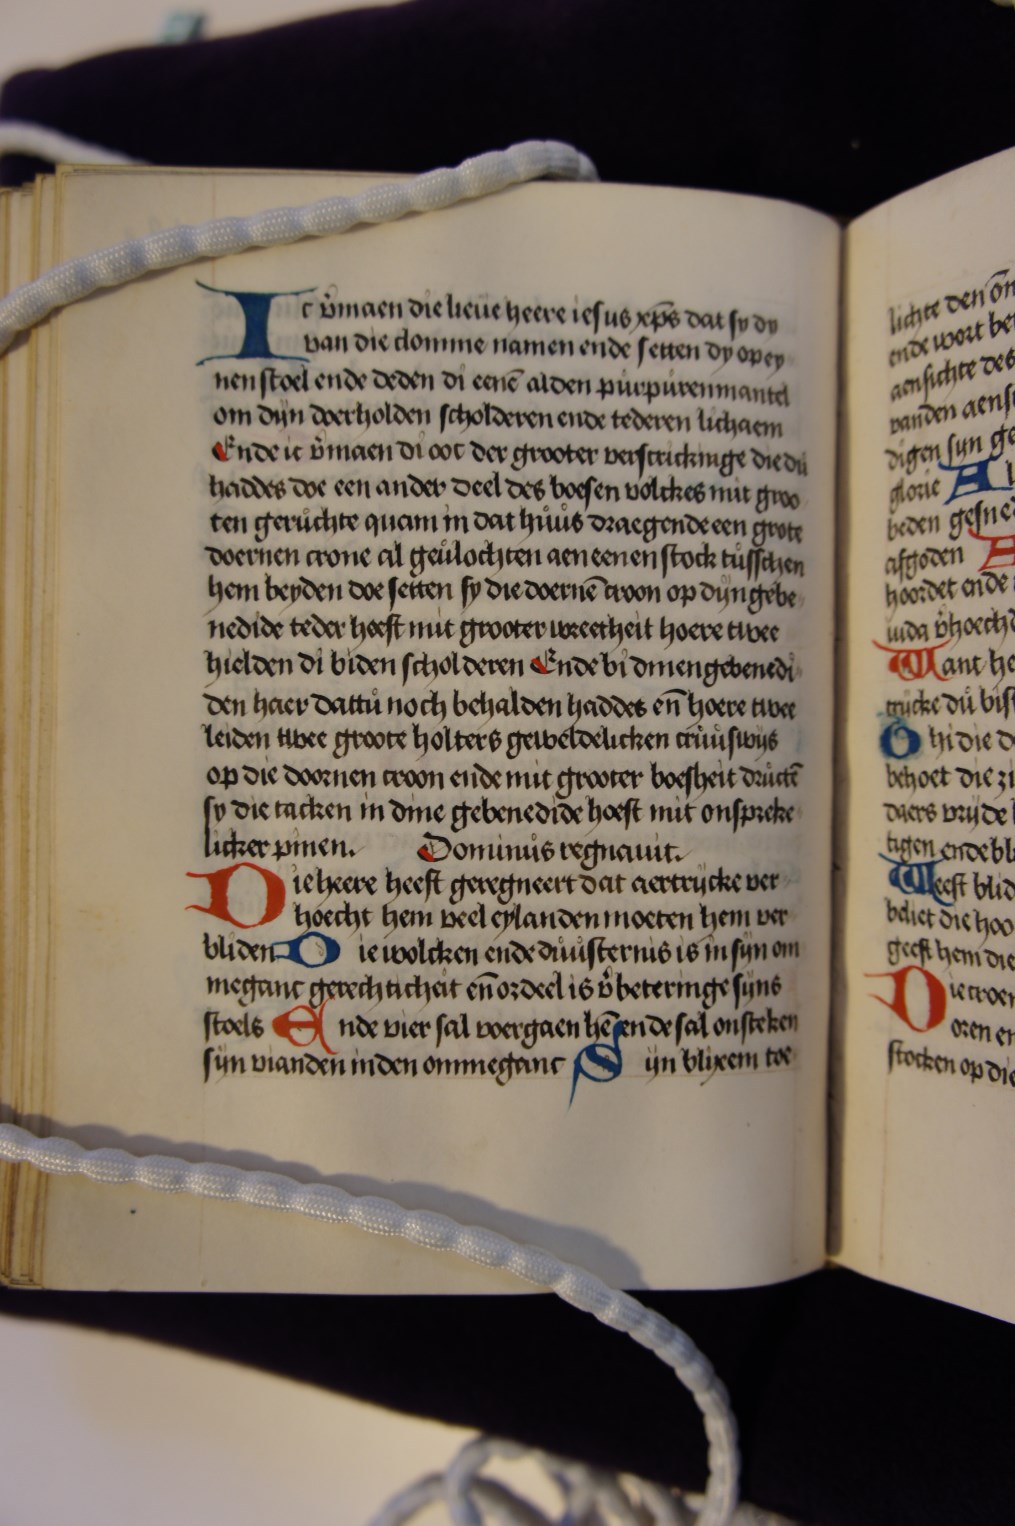 Ic v̄maen die lieue heere iesus xp̄s dat sy dy
van die clomme namen ende setten dy op ey
nen stoel ende deden di eenē alden purpurenmantel
om dijn doerholden scholderen ende tederen lichaem
Ende ic v̄maen di ooc der grooter verstrickinge die du
haddes doe een ander deel des boesen volckes mit groo
ten geruchte quam in dat huus draegende een grote
doernen crone al geulochten aen eenen stock tusschen
hem beyden doe setten sy die doernē croon op dijn gebe
nedide teder hoeft mit grooter wreetheit hoere twee
hielden di biden scholderen Ende bi dinen gebenedi
den haer dattu noch behalden haddes en̄ hoere twee
leiden twee groote holters geweldelicken cruuswijs
op die doornen croon ende mit grooter boesheit drucktē
sy die tacken in dine gebenedide hoeft mit onspreke
licker pinen. Dominus regnauit.
Die heere heeft geregneert dat aertrijcke ver
hoecht hem veel eylanden moeten hem ver
bliden Die wolcken ende duusternis is in sijn om
meganc gerechticheit en̄ ordeel is v̄beteringe sijns
stoels Ende vier sal voergaen hē ende sal onsteken
sijn vianden inden ommeganc Sijn blixem toe
lichte den
ende wort
aensichte des
vanden
digen sijn
glorie
beden
afgoden
hoordet ende
iuda v̄hoech
Want
du
O hi die
behoet die
daers vrijde
ende
Weest
die
geest hem die
Die
oren
stocken op die